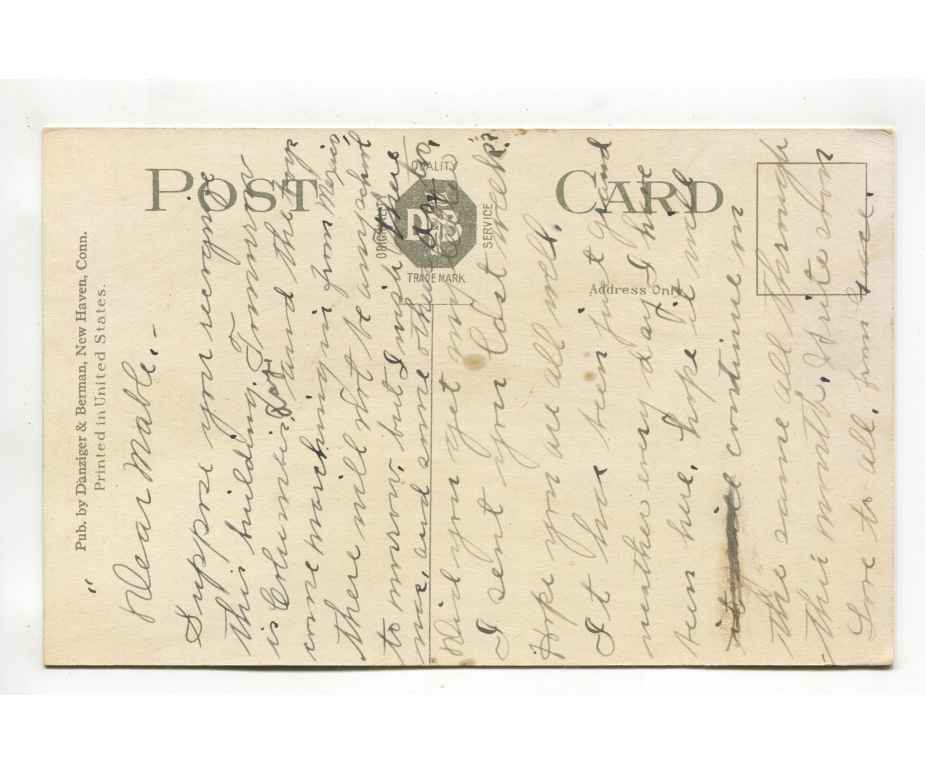 POST CARD
Pub. by Danziger & Berman, New Haven, Conn.
Printed in United States.
QUALITY
ORIGINAL
SERVICE
TRADE MARK
Address Only
Dear Mable.-
Suppose you recognize
this building. Tomorrow
is Columbus Day and the boys
come marching in from Mexico
there will not be any school
tomorrow, but I wish you were
me, and some other day too.
Did you get my
I sent you last week?
Hope you are all well.
It has been just grand
weather every day I have
been here, hope it will
continue on
the same all through
this month. Write soon
Love to all, from Grace.